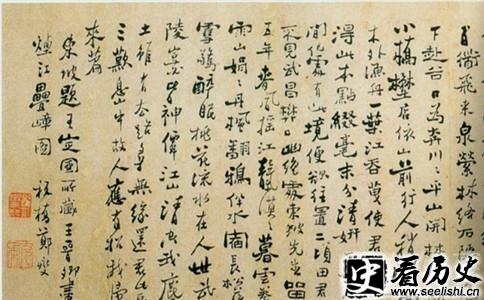 百衜飛来泉縈林絡石
下赴谷口為奔川川平山開林
小橋壄店依山前行人稍
木外漁舟一葉江吞天使君
得此本點綴毫末分清妍
間何處有此境便欲往置二頃田君
不見武昌樊口幽絕處東坡先生留
五年春風搖江天漠漠暮雲
雨山娟娟丹楓翻鴉伴水宿長松
雪驚醉眠桃花流水在人世武
陵豈必皆神僊江山清空我塵
土雖有去路尋無緣還君此
三歎息山中故人應有招我歸
來篇
東坡題王定國所藏王晉卿畫
煙江疊嶂圖 板橋鄭燮
史看历史
www.seelishi.cn